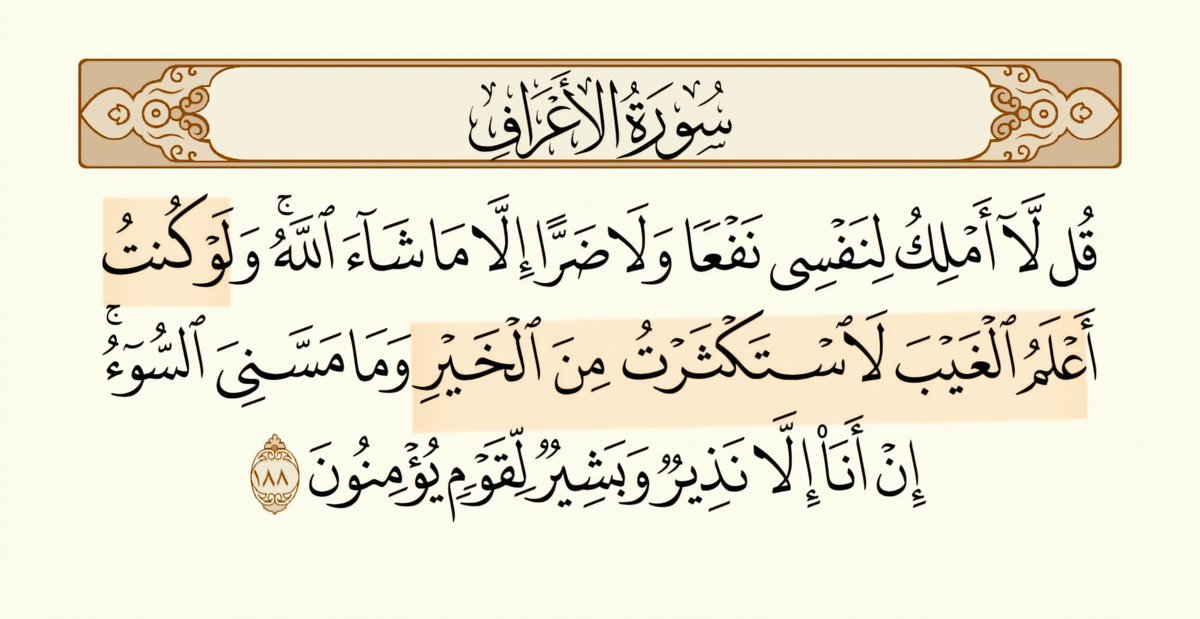 سُورَةُ الأَعْرَافِ
قُل لَّآ أَمْلِكُ لِنَفْسِى نَفْعًا وَلَا ضَرًّا إِلَّا مَا شَآءَ ٱللَّهُ ۚ وَلَوْ كُنتُ
أَعْلَمُ ٱلْغَيْبَ لَٱسْتَكْثَرْتُ مِنَ ٱلْخَيْرِ وَمَا مَسَّنِىَ ٱلسُّوٓءُ ۚ
إِنْ أَنَا۠ إِلَّا نَذِيرٌ وَبَشِيرٌ لِّقَوْمٍ يُؤْمِنُونَ ١٨٨